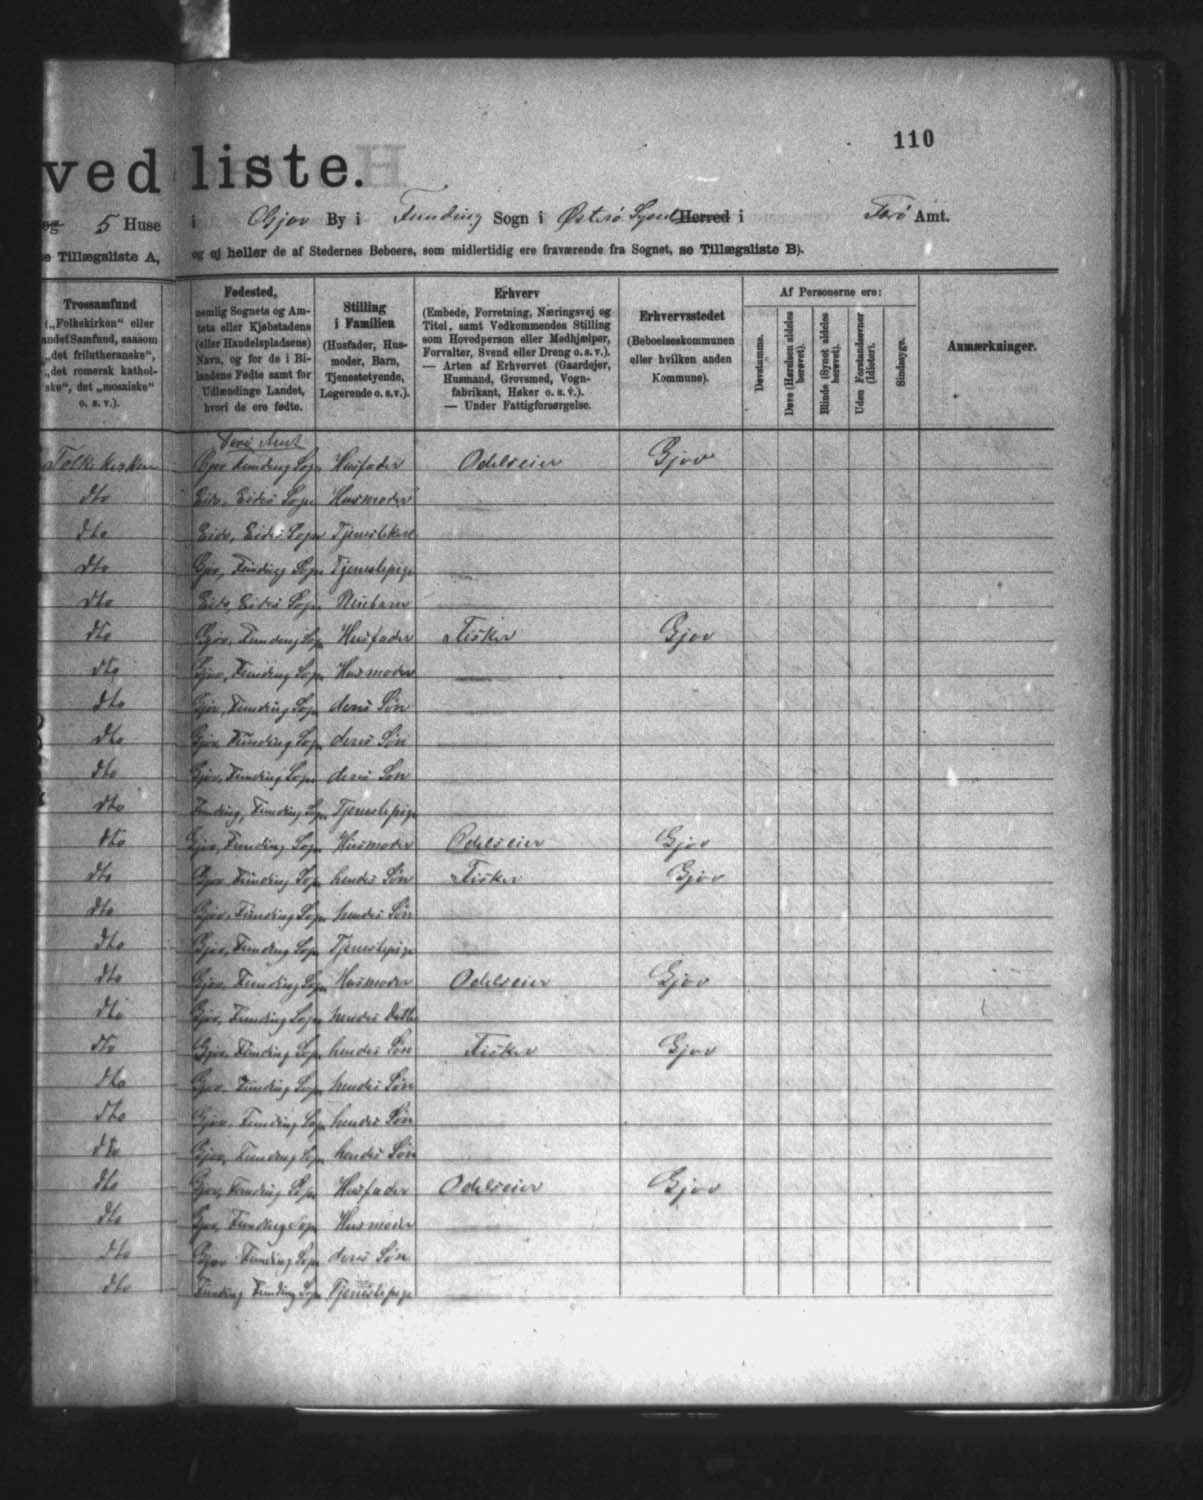 110
vedliste.
og 5 Huse i Gjov By i Funding Sogn i Østerø Syssel Herred i Færø Amt.
e Tillægsliste A, og ej heller de af Stedernes Beboere, som midlertidig ere fraværende fra Sognet, se Tillægsliste B).
Trossamfund
(„Folkekirken“ eller
andet Samfund, saasom
„det frilutheranske“,
„det romersk kathol-
ske“, det „mosaiske“
o. s. v.).
Fødested,
nemlig Sognets og Am-
tets eller Kjøbstadens
(eller Handelspladsens)
Navn, og for de i Bi-
landene Fødte samt for
Udlændinge Landet,
hvori de ere fødte.
Stilling
i Familien
(Husfader, Hus-
moder, Barn,
Tjenestetyende,
Logerende o. s. v.).
Erhverv
(Embede, Forretning, Næringsvej og
Titel, samt Vedkommendes Stilling
som Hovedperson eller Medhjælper,
Forvalter, Svend eller Dreng o. s. v.).
— Arten af Erhvervet (Gaardejer,
Husmand, Grovsmed, Vogn-
fabrikant, Høker o. s. v.).
— Under Fattigforsørgelse.
Erhvervsstedet
(Beboelseskommunen
eller hvilken anden
Kommune).
Af Personerne ere:
Døvstumme.
Døve (Hørelsen aldeles
berøvet).
Blinde (Synet aldeles
berøvet).
Uden Forstandsevner
(Idioter).
Sindssyge.
Anmærkninger.
Færø Amt
Folkekirken Gjov Funding Sogn Husfader Odelseier Gjov
dto Eide, Eides Sogn Husmoder
dto Eide, Eides Sogn Tjenestekarl
dto Gjov, Funding Sogn Tjenestepige
dto Eide, Eides Sogn
dto Gjov, Funding Sogn Husfader Fisker Gjov
dto Gjov, Funding Sogn Husmoder
dto Gjov, Funding Sogn deres Søn
dto Gjov, Funding Sogn deres Søn
dto Gjov, Funding Sogn deres Søn
dto Funding, Funding Sogn Tjenestepige
dto Gjov, Funding Sogn Husmoder Odelseier Gjov
dto Gjov, Funding Sogn hendes Søn Fisker Gjov
dto Gjov, Funding Sogn hendes Søn
dto Gjov, Funding Sogn Tjenestepige
dto Gjov, Funding Sogn Husmoder Odelseier Gjov
dto Gjov, Funding Sogn hendes Datter
dto Gjov, Funding Sogn hendes Søn Fisker Gjov
dto Gjov, Funding Sogn hendes Søn
dto Gjov, Funding Sogn hendes Søn
dto Gjov, Funding Sogn hendes Søn
dto Gjov, Funding Sogn Husfader Odelseier Gjov
dto Gjov, Funding Sogn Husmoder
dto Gjov Funding Sogn deres Søn
dto Funding Funding Sogn Tjenestepige